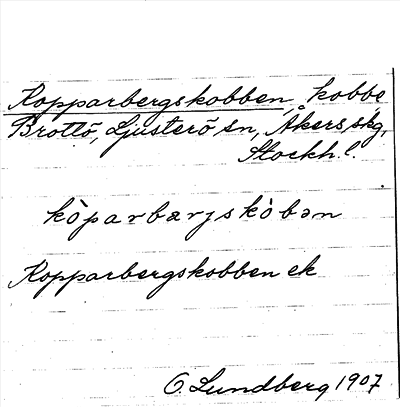 Kopparbergskobben, kobbe
Brottö, Ljusterö sn, Åkers skg,
Stockh. l.
kòparbærjskòbən
Kopparbergskobben ek
O Lundberg 1907